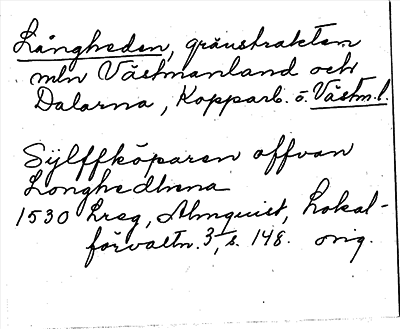 Långheden, gränstrakten
mln Västmanland och
Dalarna, Kopparb. o. Västm.l.
Sylffköparen offvan
Longhedhena
1530 Lreg, Almquist, Lokal-
förvaltn. 3, s. 148. orig.